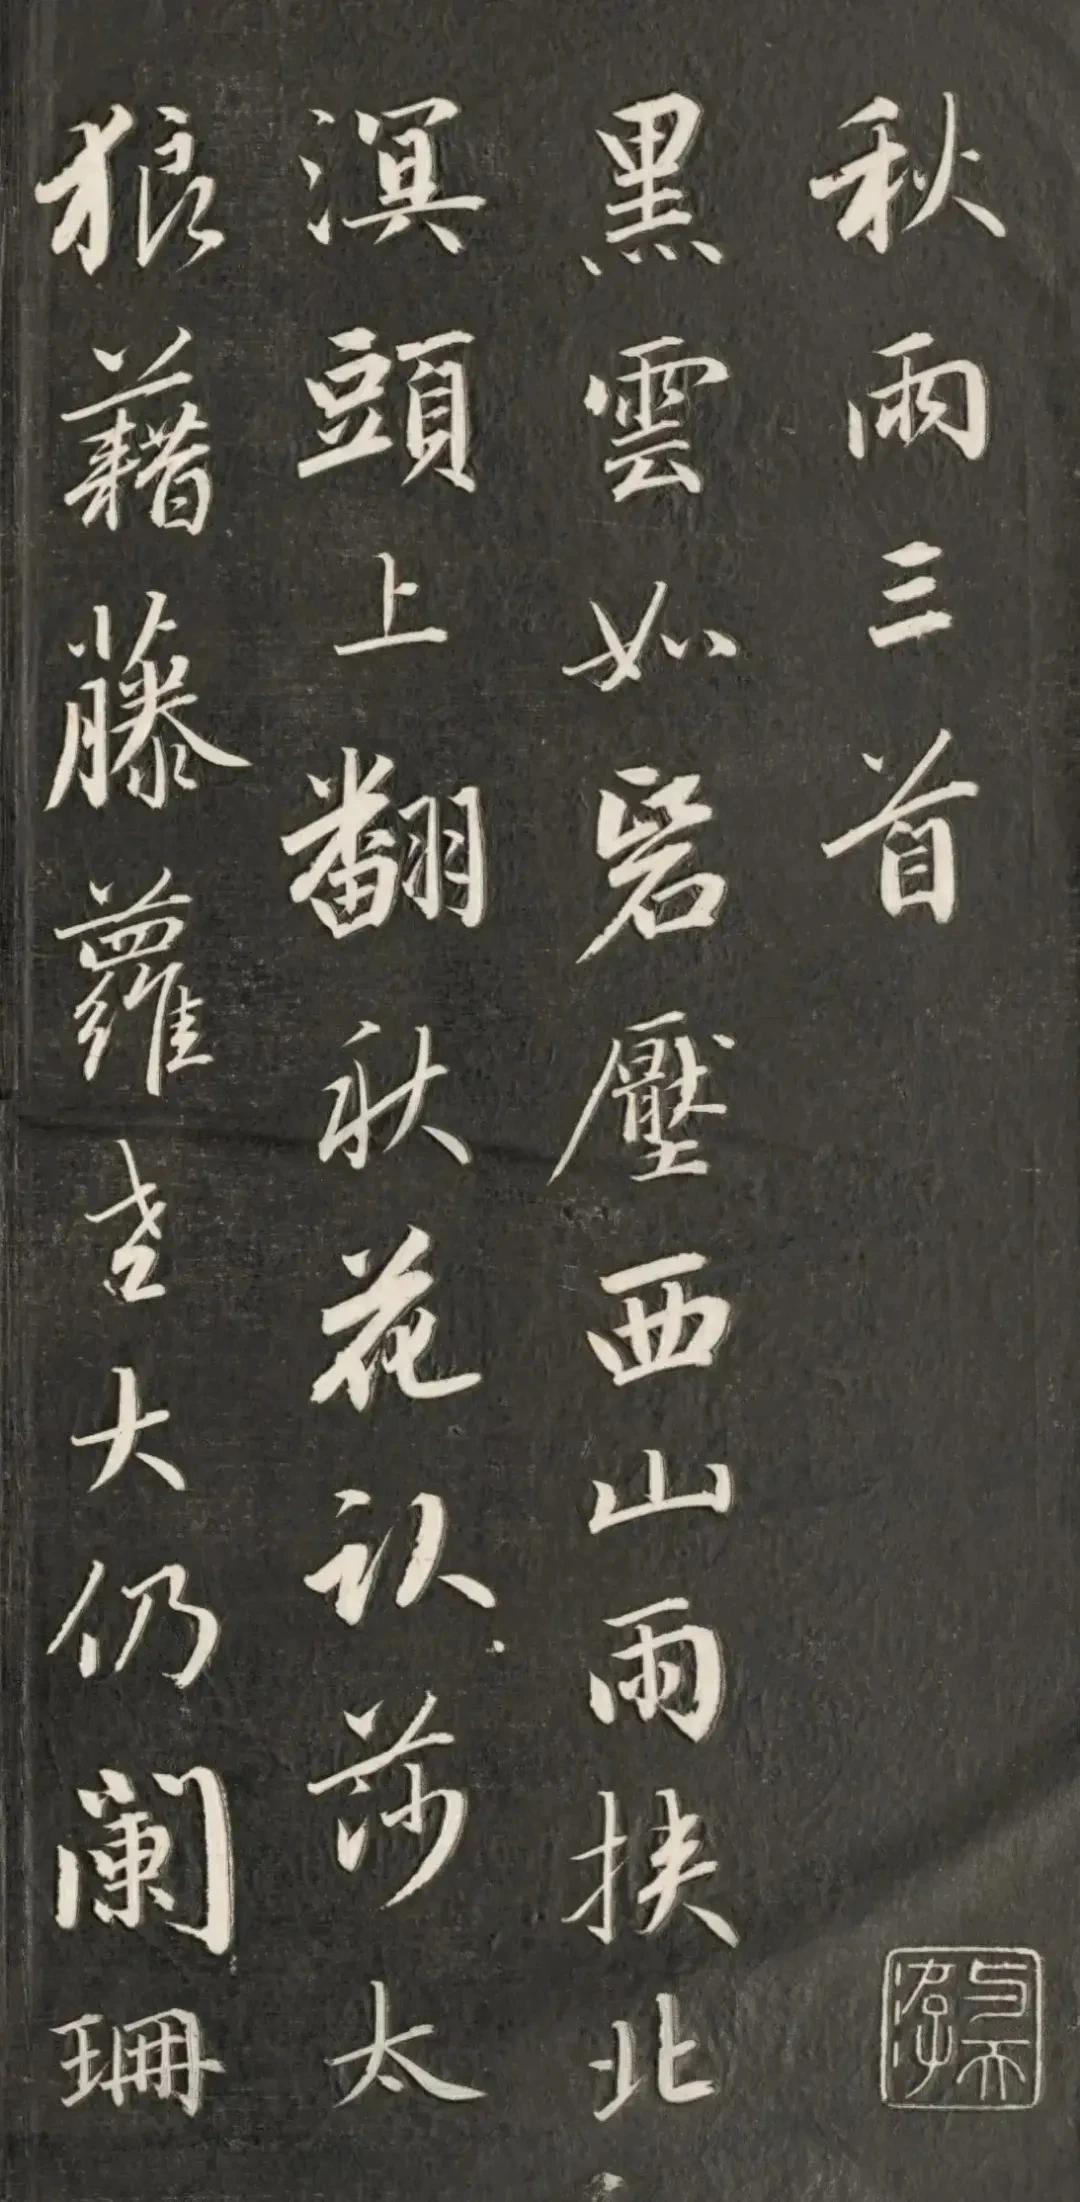 秋雨三首
黑雲如壓西山雨挟北
溟頭上翻秋花臥莎太
狼藉藤蘿老大仍闌珊